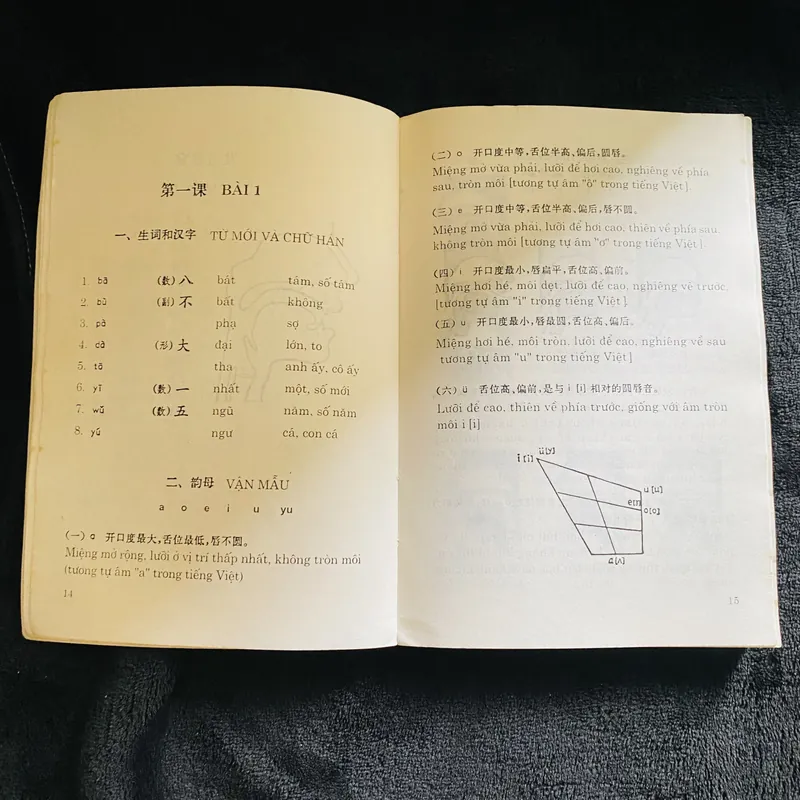 第一课 BÀI 1
一、生词和汉字 TỪ MỚI VÀ CHỮ HÁN
1. bā (数) 八 bát tám, số tám
2. bù (副) 不 bất không
3. pà phạ sợ
4. dà (形) 大 đại lớn, to
5. tā tha anh ấy, cô ấy
6. yī (数) 一 nhất một, số mới
7. wǔ (数) 五 ngũ năm, số năm
8. yú ngư cá, con cá
二、韵母 VẬN MẪU
a o e i u yu
(一) ɑ 开口度最大,舌位最低,唇不圆。
Miệng mở rộng, lưỡi ở vị trí thấp nhất, không tròn môi
(tương tự âm "a" trong tiếng Việt)
14
(二) o 开口度中等,舌位半高、偏后,圆唇。
Miệng mở vừa phải, lưỡi để hơi cao, nghiêng về phía
sau, tròn môi [tương tự âm "ô" trong tiếng Việt].
(三) e 开口度中等,舌位半高、偏后,唇不圆。
Miệng mở vừa phải, lưỡi để hơi cao, thiên về phía sau,
không tròn môi [tương tự âm "ơ" trong tiếng Việt].
(四) i 开口度最小,唇扁平,舌位高、偏前。
Miệng hơi hé, môi dẹt, lưỡi để cao, nghiêng về trước,
[tương tự âm "i" trong tiếng Việt].
(五) u 开口度最小,唇最圆,舌位高、偏后。
Miệng hơi hé, môi tròn, lưỡi để cao, nghiêng về sau
tương tự âm "u" trong tiếng Việt]
(六) ü 舌位高、偏前,是与 i [i] 相对的圆唇音。
Lưỡi để cao, thiên về phía trước, giống với âm tròn
môi i [i]
ü [y]
i [i]
u [u]
o [o]
15